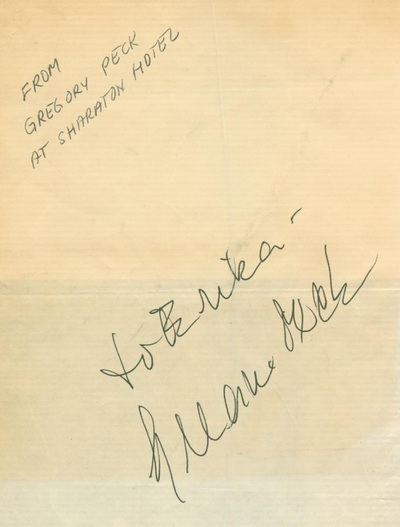 FROM
GREGORY PECK
AT SHARATON HOTEL
to Erika -
Gregory Peck